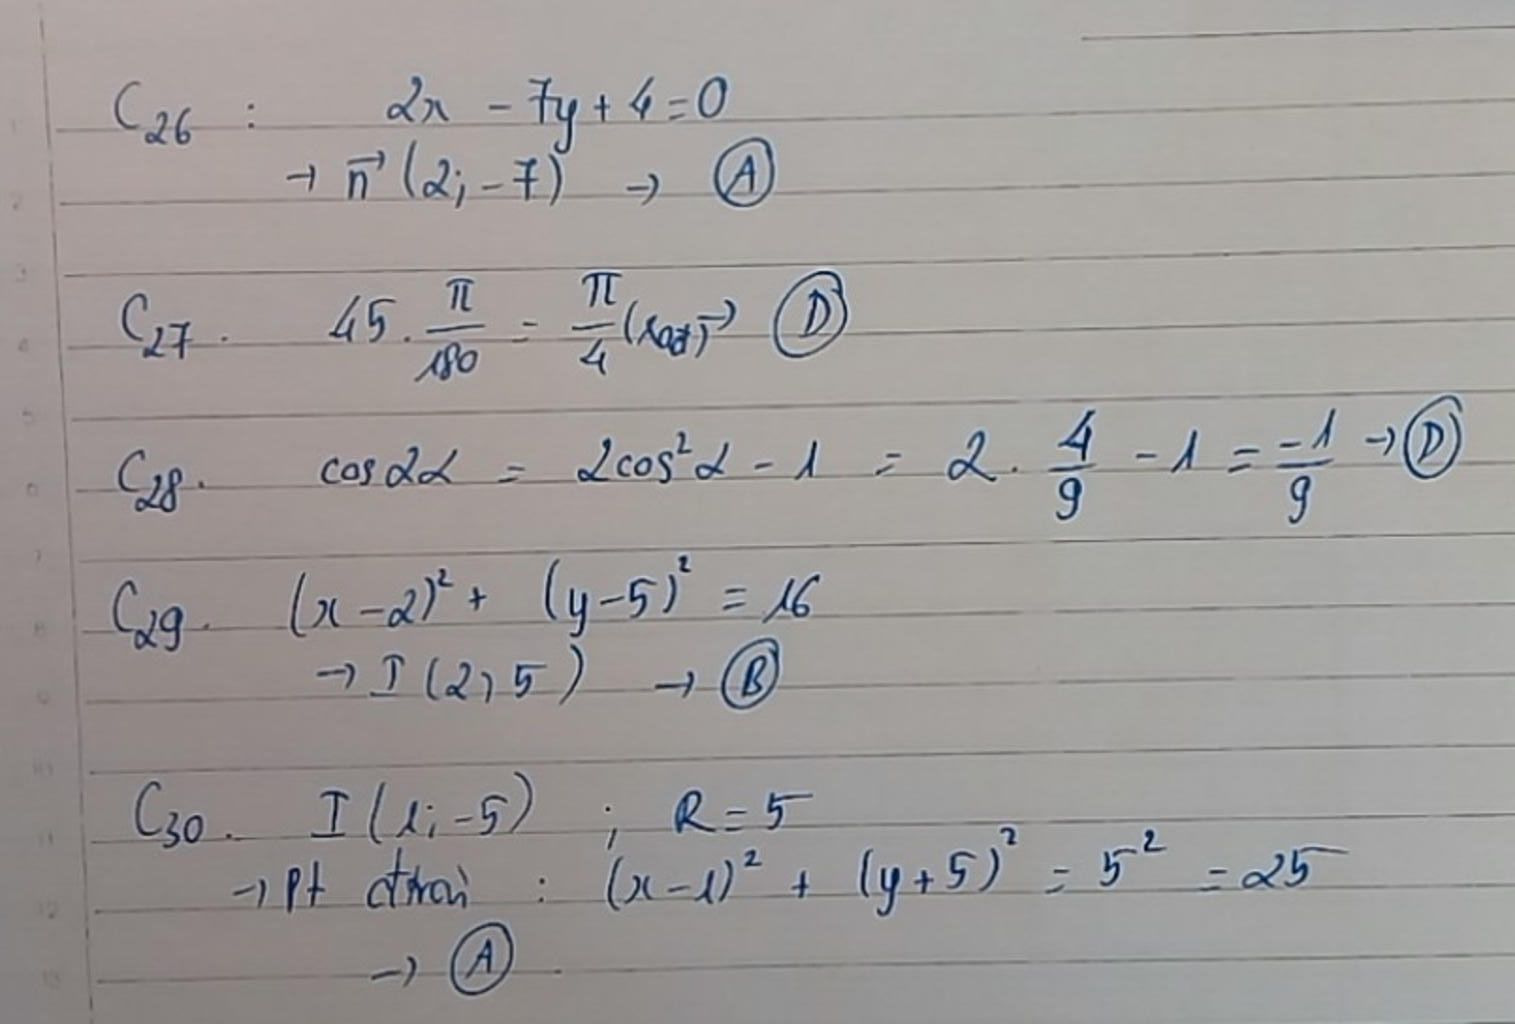 C26 : 2x - 7y + 4 = 0
→ n⃗ (2; -7) → Ⓐ
C27. 45 . π/180 = π/4 (rad) → Ⓓ
C28. cos 2α = 2cos²α - 1 = 2 . 4/9 - 1 = -1/9 → Ⓓ
C29. (x - 2)² + (y - 5)² = 16
→ I (2; 5) → Ⓑ
C30. I (1; -5) ; R = 5
→ Pt : (x - 1)² + (y + 5)² = 5² = 25
→ Ⓐ